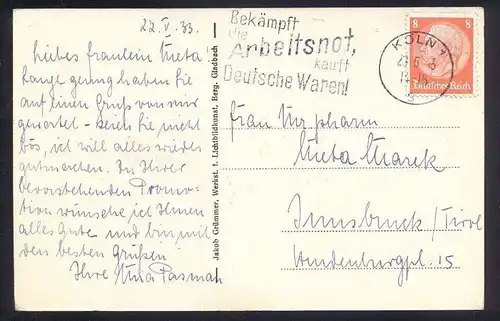 22.V.33.
Liebes Fräulein Meta!
Lange genug haben Sie
auf einen Gruß von mir
gewartet - seien Sie nicht
bös, ich will alles wieder
gutmachen. Zu Ihrer
bevorstehenden Promo-
tion wünsche ich Ihnen
alles Gute und bin mit
den besten Grüßen
Ihre
Jakob Grümmer, Werkst. f. Lichtbildkunst, Berg. Gladbach
Bekämpft
die
Arbeitsnot,
kauft
Deutsche Waren!
KÖLN 1
8 8
Deutsches Reich
Frau Mr. pharm
Meta Marek
Innsbruck / Tirol
Hindenburgpl. 15